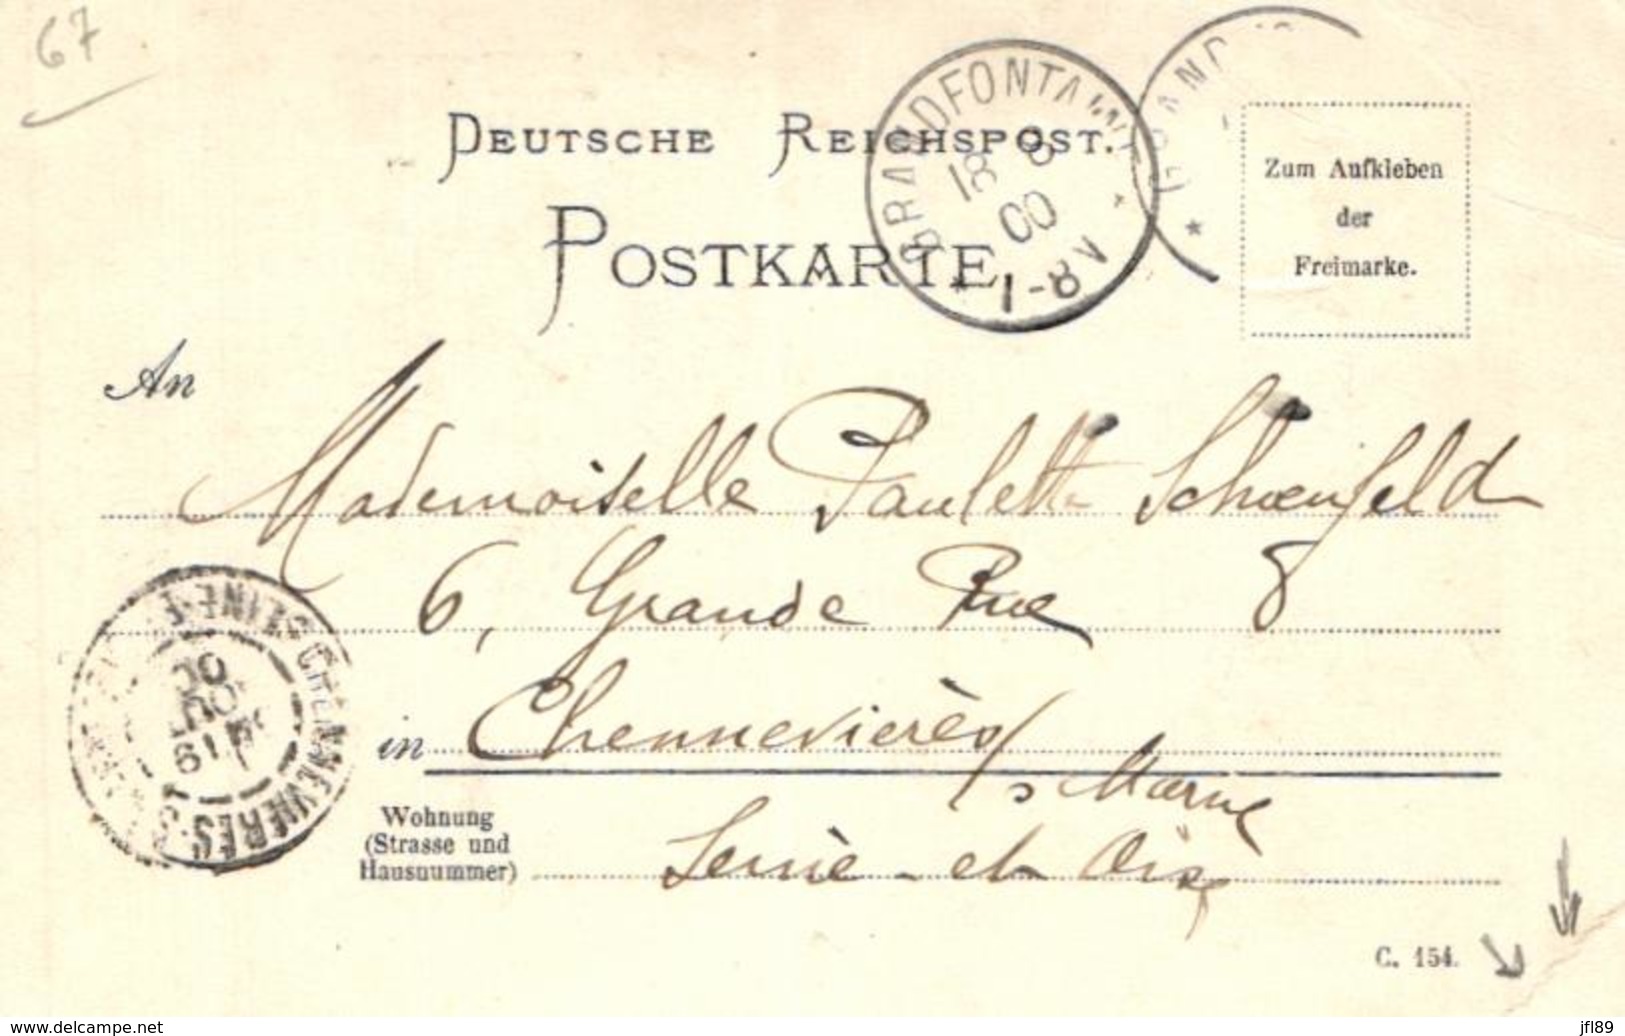 67
DEUTSCHE REICHSPOST.
POSTKARTE
BRANDFONTAINE
18 8
00
1-8N
BRAND
Zum Aufkleben
der
Freimarke.
An
Mademoiselle Paulette Schoenfeld
6, Grande Rue 8
in Chennevières
s/ Marne
Wohnung
(Strasse und
Hausnummer)
Seine-et-Oise
CHENNEVIERES
19
AOUT
00
C. 154.
https://www.delcampe.net
jfl89